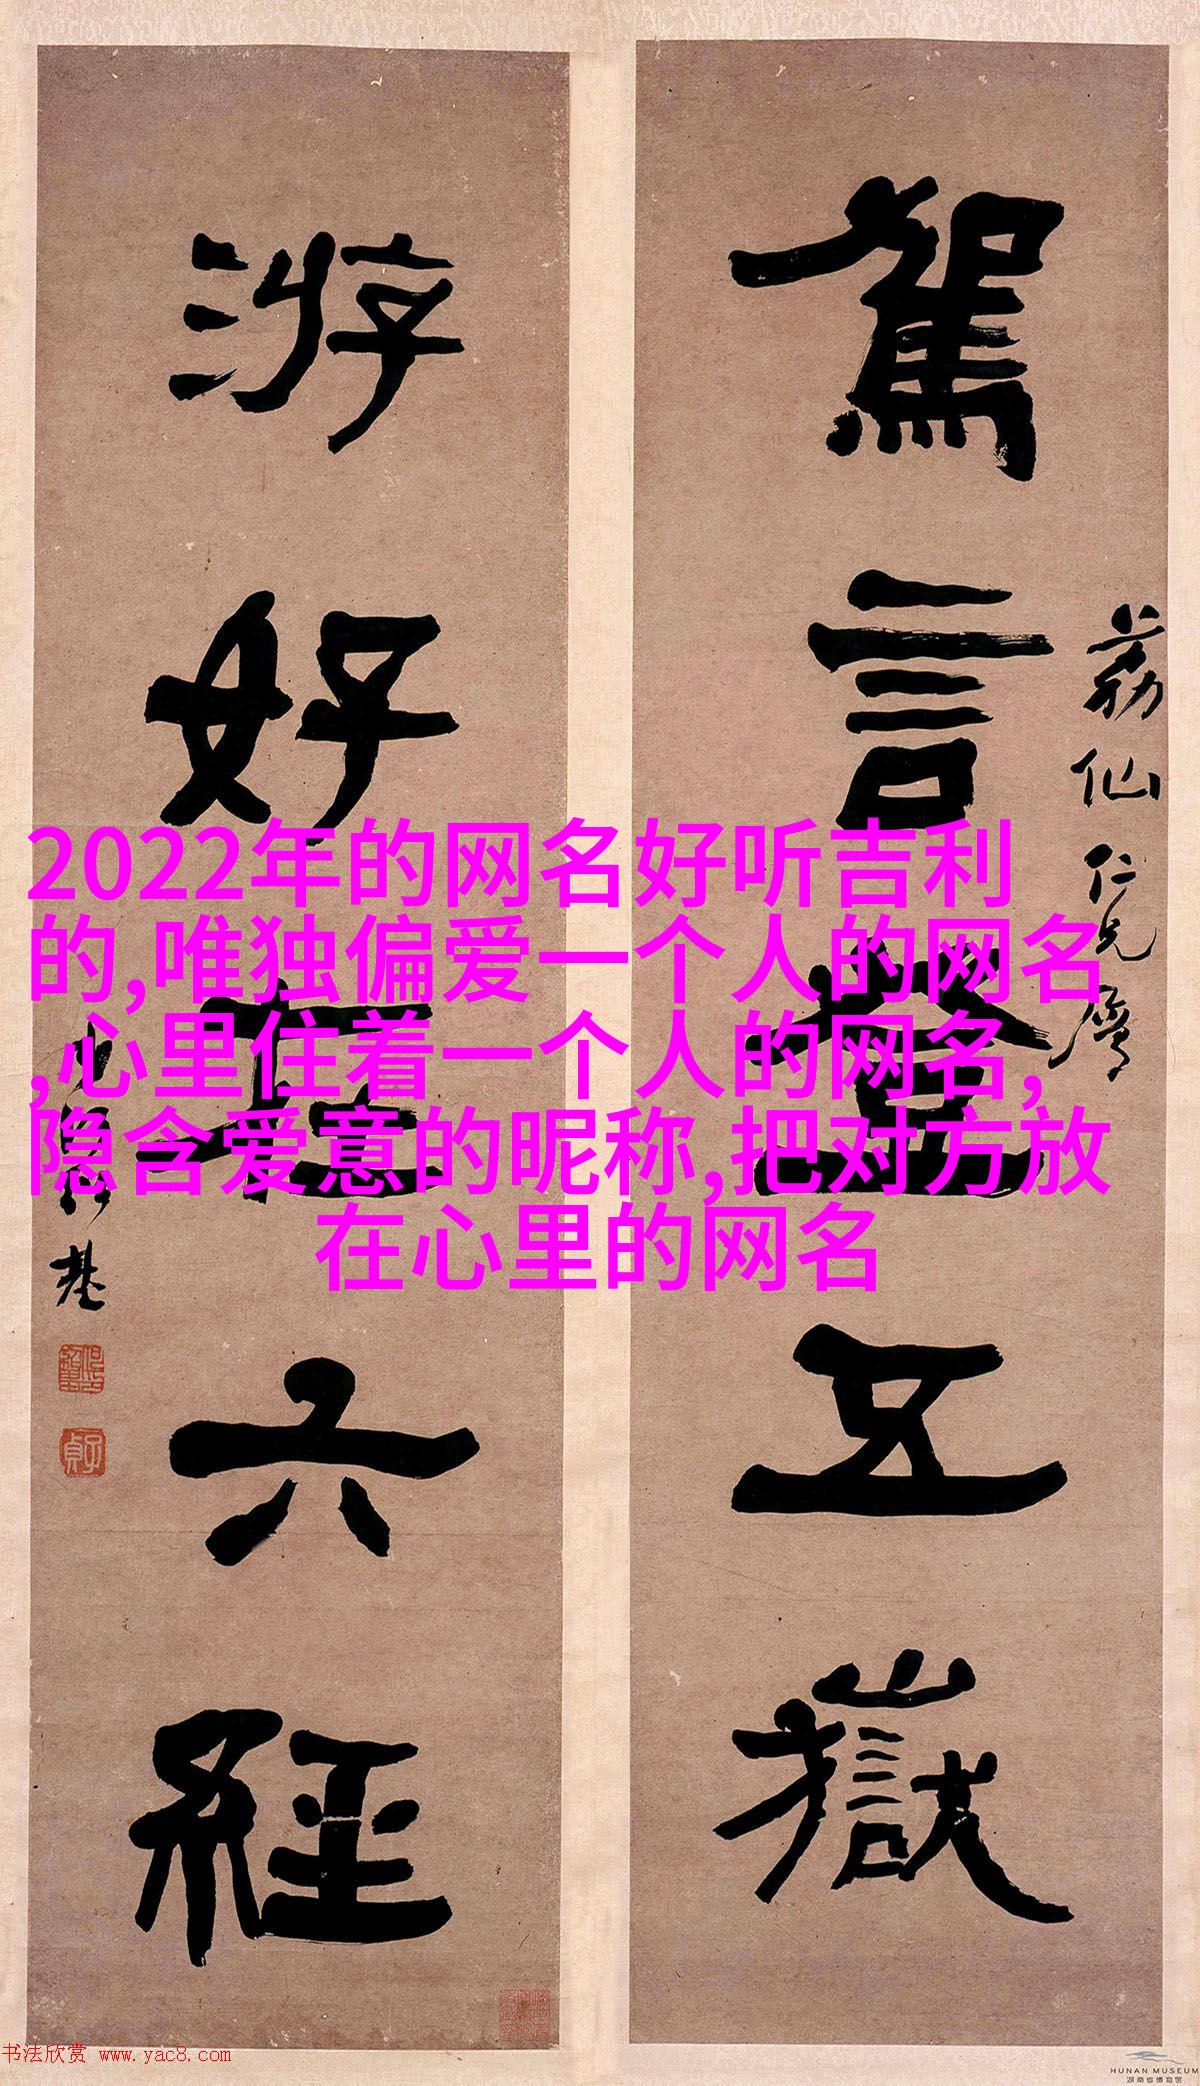 駕言登五嶽
荔仙仁兄属
游好在六經
何紹基
2022年的网名好听吉利
的,唯独偏爱一个人的网名
,心里住着一个人的网名,
隐含爱意的昵称,把对方放
在心里的网名
书法欣赏 www.yac8.com
HUNAN MUSEUM
湖南省博物馆